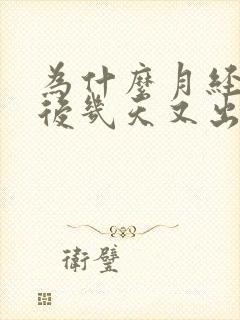 為什麼月經
後幾天又出
衛璧